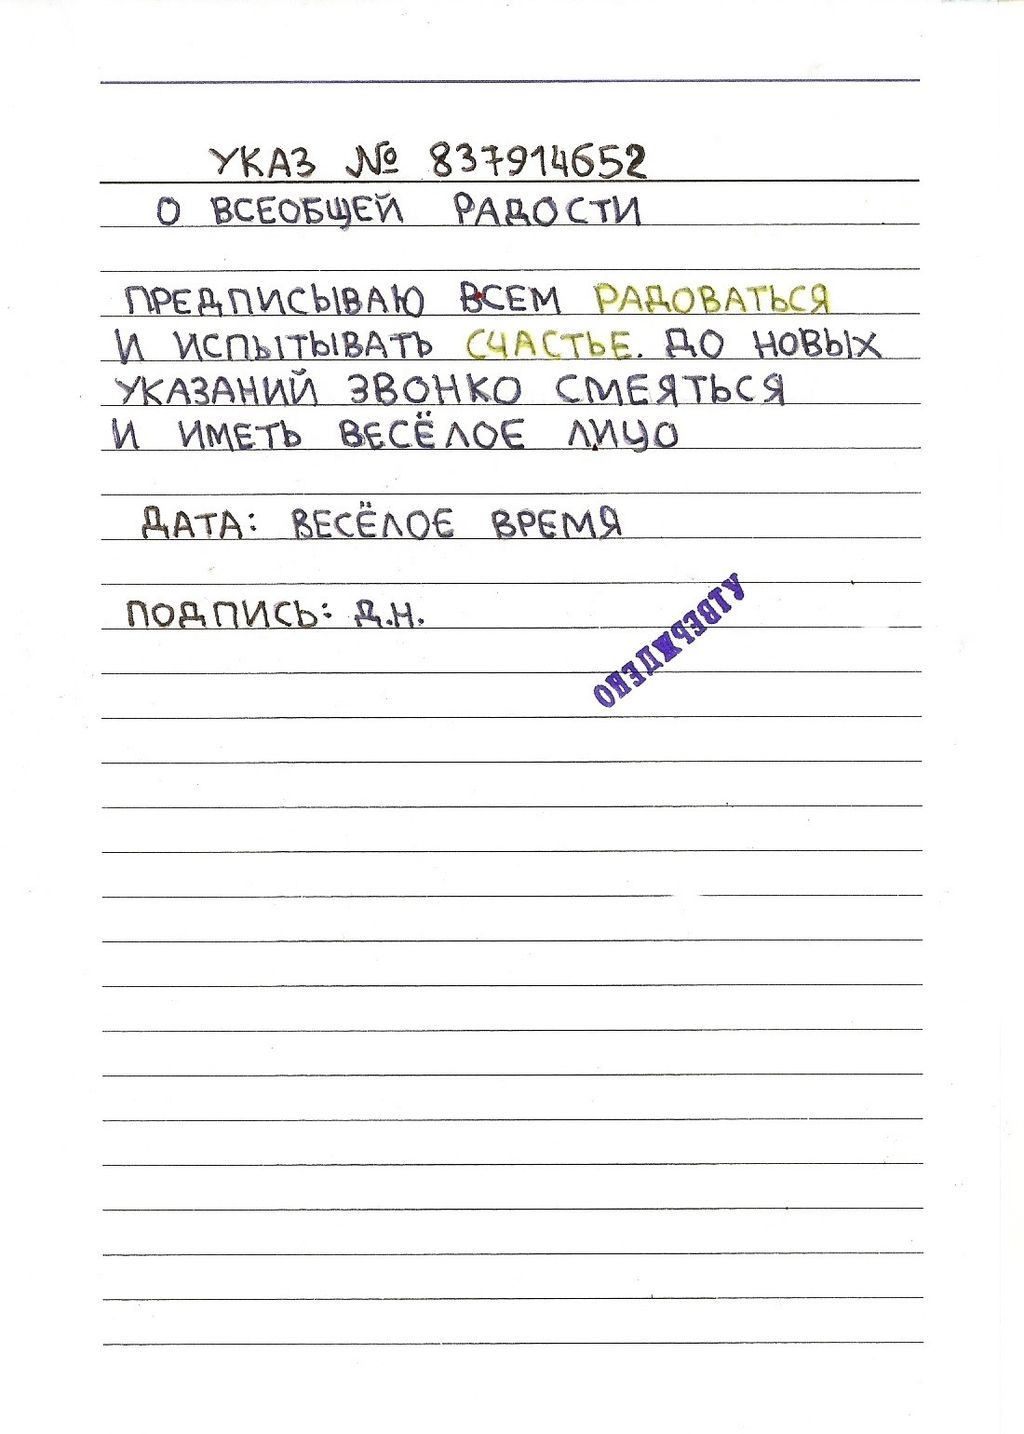 УКАЗ № 837914652
О ВСЕОБЩЕЙ РАДОСТИ
ПРЕДПИСЫВАЮ ВСЕМ РАДОВАТЬСЯ
И ИСПЫТЫВАТЬ СЧАСТЬЕ. ДО НОВЫХ
УКАЗАНИЙ ЗВОНКО СМЕЯТЬСЯ
И ИМЕТЬ ВЕСЁЛОЕ ЛИЦО
ДАТА: ВЕСЁЛОЕ ВРЕМЯ
ПОДПИСЬ: Д.Н.
УТВЕРЖДЕНО